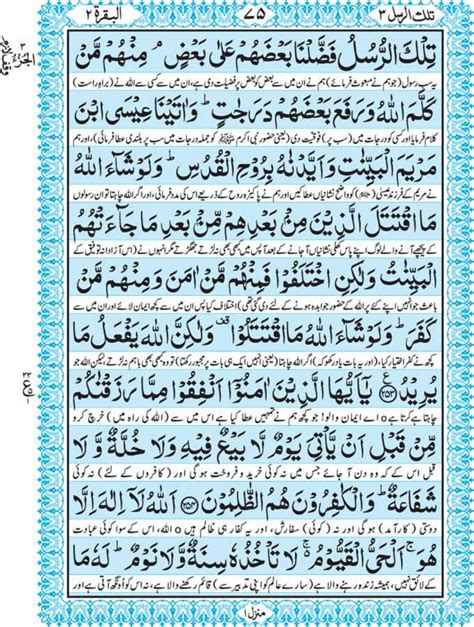 تلك الرسل ٣ ٧٥ البقرة ٢
تِلْكَ الرُّسُلُ فَضَّلْنَا بَعْضَهُمْ عَلٰى بَعْضٍ ۘ مِنْهُمْ مَّنْ
یہ سب رسول (جو ہم نے مبعوث فرمائے) ہم نے ان میں سے بعض کو بعض پر فضیلت دی ہے، ان میں سے کسی سے اللہ نے (براہِ راست)
كَلَّمَ اللّٰهُ وَرَفَعَ بَعْضَهُمْ دَرَجٰتٍ ؕ وَاٰتَيْنَا عِيْسَى ابْنَ
کلام فرمایا اور کسی کو درجات میں (سب پر) فوقیت دی (یعنی حضور نبی اکرم ﷺ کو جملہ درجات میں سب پر بلندی عطا فرمائی)، اور ہم
مَرْيَمَ الْبَيِّنٰتِ وَاَيَّدْنٰهُ بِرُوْحِ الْقُدُسِ ؕ وَلَوْ شَآءَ اللّٰهُ
نے مریم کے فرزند عیسٰی کو واضح نشانیاں عطا کیں اور ہم نے پاکیزہ روح کے ذریعے اس کی مدد فرمائی، اور اگر اللہ چاہتا تو ان رسولوں
مَا اقْتَتَلَ الَّذِيْنَ مِنْۢ بَعْدِهِمْ مِّنْۢ بَعْدِ مَا جَآءَتْهُمُ
کے پیچھے آنے والے لوگ اپنے پاس کھلی نشانیاں آ جانے کے بعد آپس میں کبھی بھی نہ لڑتے جھگڑتے مگر انہوں نے (اس آزادانہ توفیق کے
الْبَيِّنٰتُ وَلٰكِنِ اخْتَلَفُوْا فَمِنْهُمْ مَّنْ اٰمَنَ وَمِنْهُمْ مَّنْ
باعث جو انہیں اپنے کئے پر اللہ کے حضور جواب دہ ہونے کے لئے دی گئی تھی) اختلاف کیا پس ان میں سے کچھ ایمان لائے اور ان میں سے
كَفَرَ ؕ وَلَوْ شَآءَ اللّٰهُ مَا اقْتَتَلُوْا ۟ وَلٰكِنَّ اللّٰهَ يَفْعَلُ مَا
کچھ نے کفر اختیار کیا، (اور یہ بات یاد رکھو کہ) اگر اللہ چاہتا (یعنی انہیں ایک ہی بات پر مجبور رکھتا) تو وہ کبھی بھی باہم نہ لڑتے، لیکن اللہ جو
يُرِيْدُ ﴿٢٥٣﴾ يٰۤاَيُّهَا الَّذِيْنَ اٰمَنُوْۤا اَنْفِقُوْا مِمَّا رَزَقْنٰكُمْ
چاہتا ہے کرتا ہے o اے ایمان والو! جو کچھ ہم نے تمہیں عطا کیا ہے اس میں سے (اللہ کی راہ میں) خرچ کرو
مِّنْ قَبْلِ اَنْ يَّاْتِيَ يَوْمٌ لَّا بَيْعٌ فِيْهِ وَلَا خُلَّةٌ وَّلَا
قبل اس کے کہ وہ دن آ جائے جس میں نہ کوئی خرید و فروخت ہوگی اور (کافروں کے لئے) نہ کوئی
شَفَاعَةٌ ؕ وَالْكٰفِرُوْنَ هُمُ الظّٰلِمُوْنَ ﴿٢٥٤﴾ اَللّٰهُ لَاۤ اِلٰهَ اِلَّا
دوستی (کارآمد) ہوگی اور نہ (کوئی) سفارش، اور یہ کفار ہی ظالم ہیں o اللہ، اس کے سوا کوئی عبادت
هُوَ ۚ اَلْحَيُّ الْقَيُّوْمُ ۚ لَا تَاْخُذُهٗ سِنَةٌ وَّلَا نَوْمٌ ؕ لَهٗ مَا
کے لائق نہیں، ہمیشہ زندہ رہنے والا ہے (سارے عالم کو اپنی تدبیر سے) قائم رکھنے والا ہے، نہ اس کو اونگھ آتی ہے اور
منزل ١